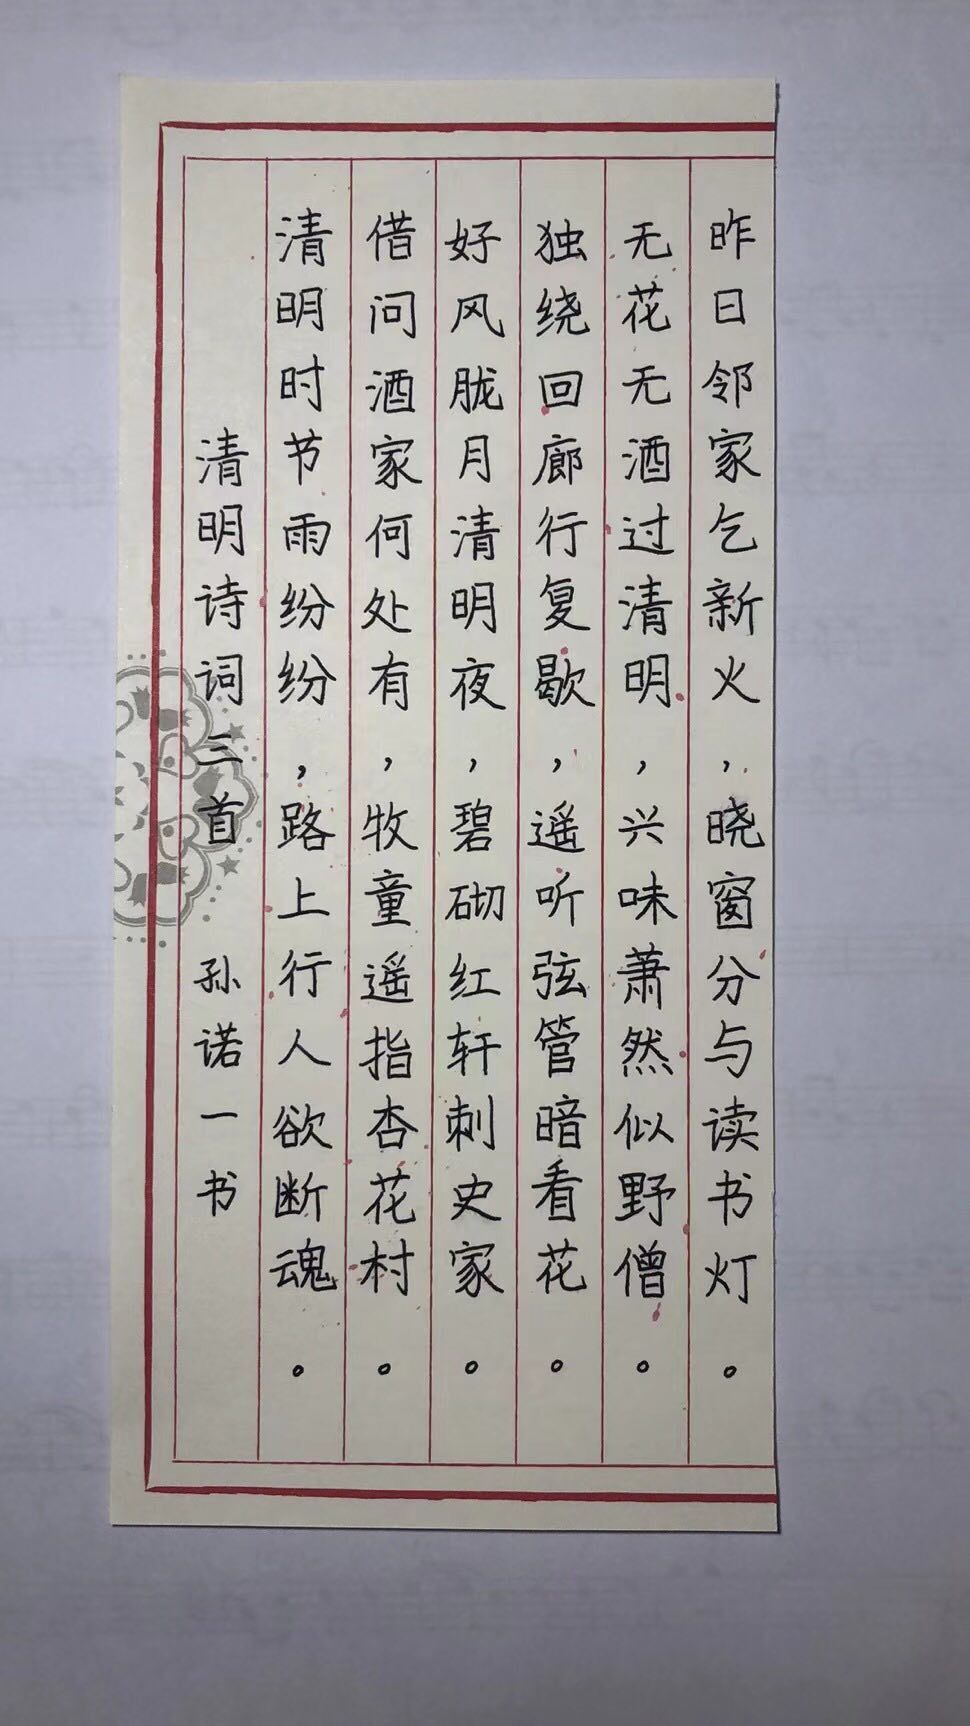 清明诗词三首 孙诺一书
清明时节雨纷纷，路上行人欲断魂。
借问酒家何处有，牧童遥指杏花村。
好风胧月清明夜，碧砌红轩刺史家。
独绕回廊行复歇，遥听弦管暗看花。
无花无酒过清明，兴味萧然似野僧。
昨日邻家乞新火，晓窗分与读书灯。